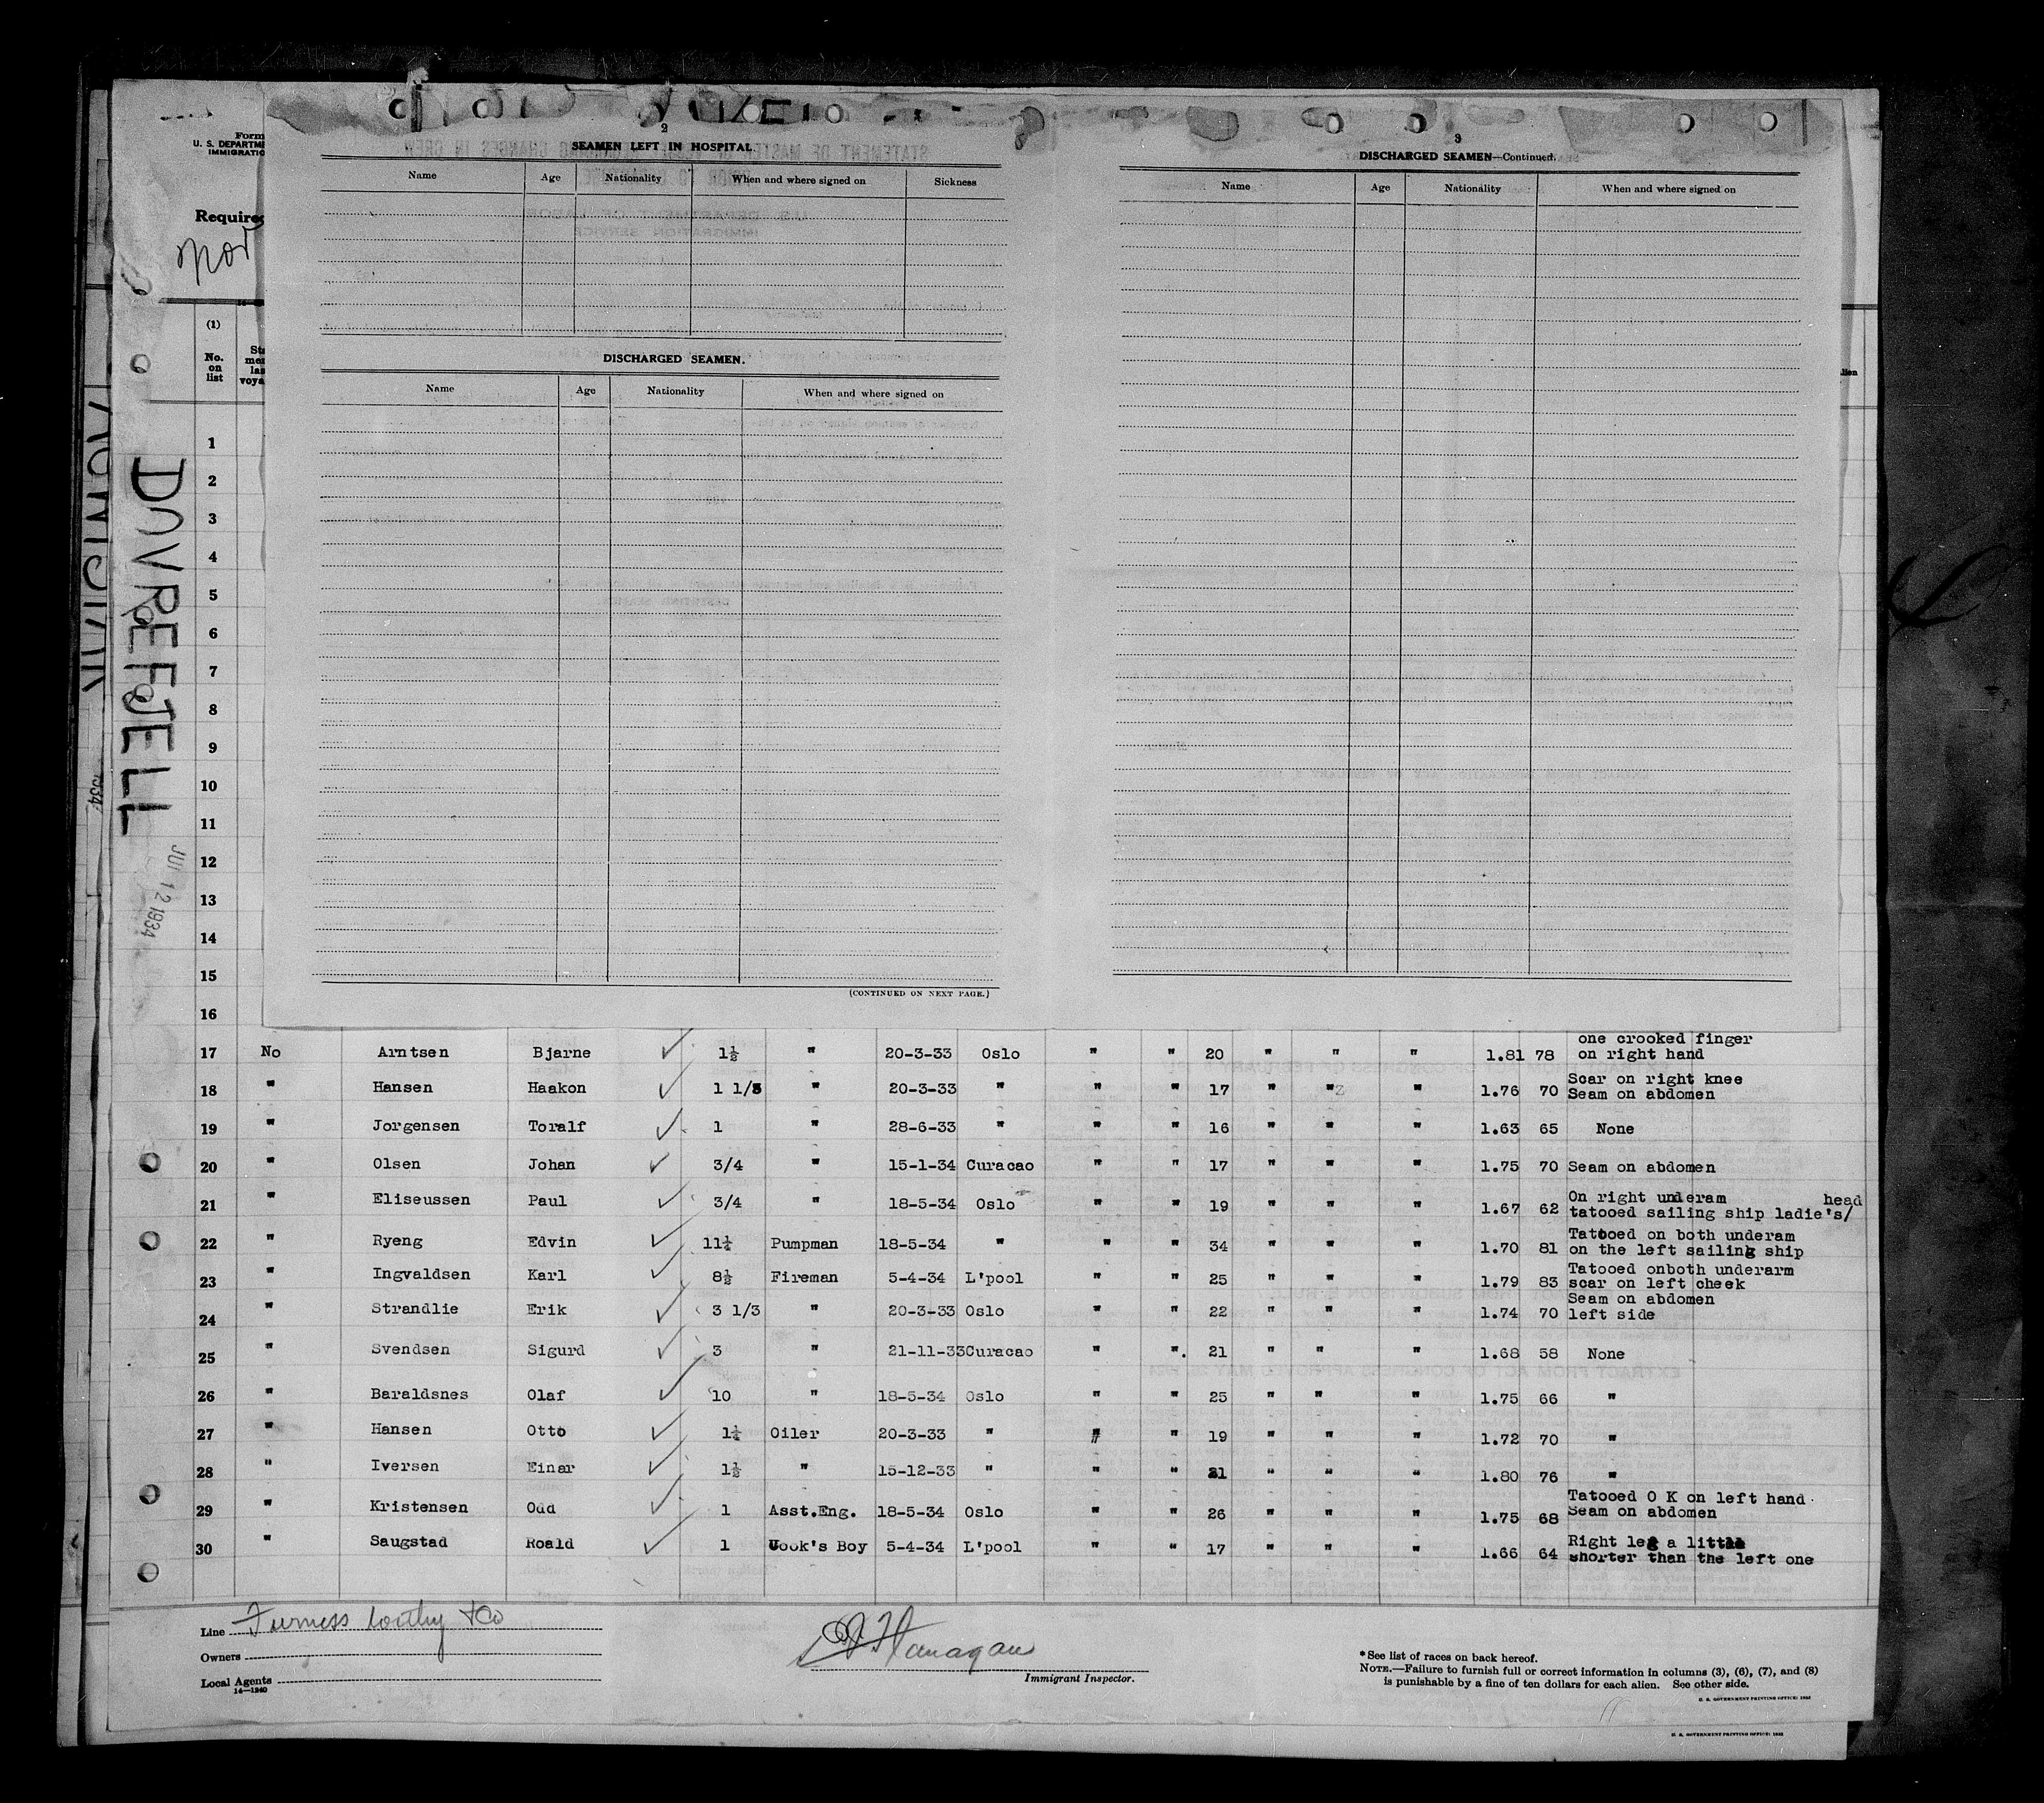 Form
U. S. DEPARTME
IMMIGRATIO
Require
Nor
DOVREFJELL
JUL 12 1934
2
SEAMEN LEFT IN HOSPITAL
Name Age Nationality When and where signed on Sickness
DISCHARGED SEAMEN.
Name Age Nationality When and where signed on
(CONTINUED ON NEXT PAGE.)
3
DISCHARGED SEAMEN—Continued.
Name Age Nationality When and where signed on
(1)
No. on list
1
2
3
4
5
6
7
8
9
10
11
12
13
14
15
16
17 No Arntsen Bjarne 1½ " 20-3-33 Oslo " " 20 " " " 1.81 78 one crooked finger on right hand
18 " Hansen Haakon 1 1/3 " 20-3-33 " " " 17 " " " 1.76 70 Scar on right knee Seam on abdomen
19 " Jorgensen Toralf 1 " 28-6-33 " " " 16 " " " 1.63 65 None
20 " Olsen Johan 3/4 " 15-1-34 Curacao " " 17 " " " 1.75 70 Seam on abdomen
21 " Eliseussen Paul 3/4 " 18-5-34 Oslo " " 19 " " " 1.67 62 On right underam tatooed sailing ship ladie's/ head
22 " Ryeng Edvin 11¼ Pumpman 18-5-34 " " " 34 " " " 1.70 81 Tatooed on both underam on the left sailing ship
23 " Ingvaldsen Karl 8½ Fireman 5-4-34 L'pool " " 25 " " " 1.79 83 Tatooed onboth underarm scar on left cheek
24 " Strandlie Erik 3 1/3 " 20-3-33 Oslo " " 22 " " " 1.74 70 Seam on abdomen left side
25 " Svendsen Sigurd 3 " 21-11-33 Curacao " " 21 " " " 1.68 58 None
26 " Baraldsnes Olaf 10 " 18-5-34 Oslo " " 25 " " " 1.75 66 "
27 " Hansen Otto 1¼ Oiler 20-3-33 " " " 19 " " " 1.72 70 "
28 " Iversen Einar 1½ " 15-12-33 " " " 21 " " " 1.80 76 "
29 " Kristensen Odd 1 Asst.Eng. 18-5-34 Oslo " " 26 " " " 1.75 68 Tatooed O K on left hand Seam on abdomen
30 " Saugstad Roald 1 Cook's Boy 5-4-34 L'pool " " 17 " " " 1.66 64 Right leg a little shorter than the left one
Line Furness Withy & Co
Owners
Local Agents
14—1240
Flanagan
Immigrant Inspector.
*See list of races on back hereof.
NOTE.—Failure to furnish full or correct information in columns (3), (6), (7), and (8)
is punishable by a fine of ten dollars for each alien. See other side.
U. S. GOVERNMENT PRINTING OFFICE: 1932
U. S. GOVERNMENT PRINTING OFFICE: 1932